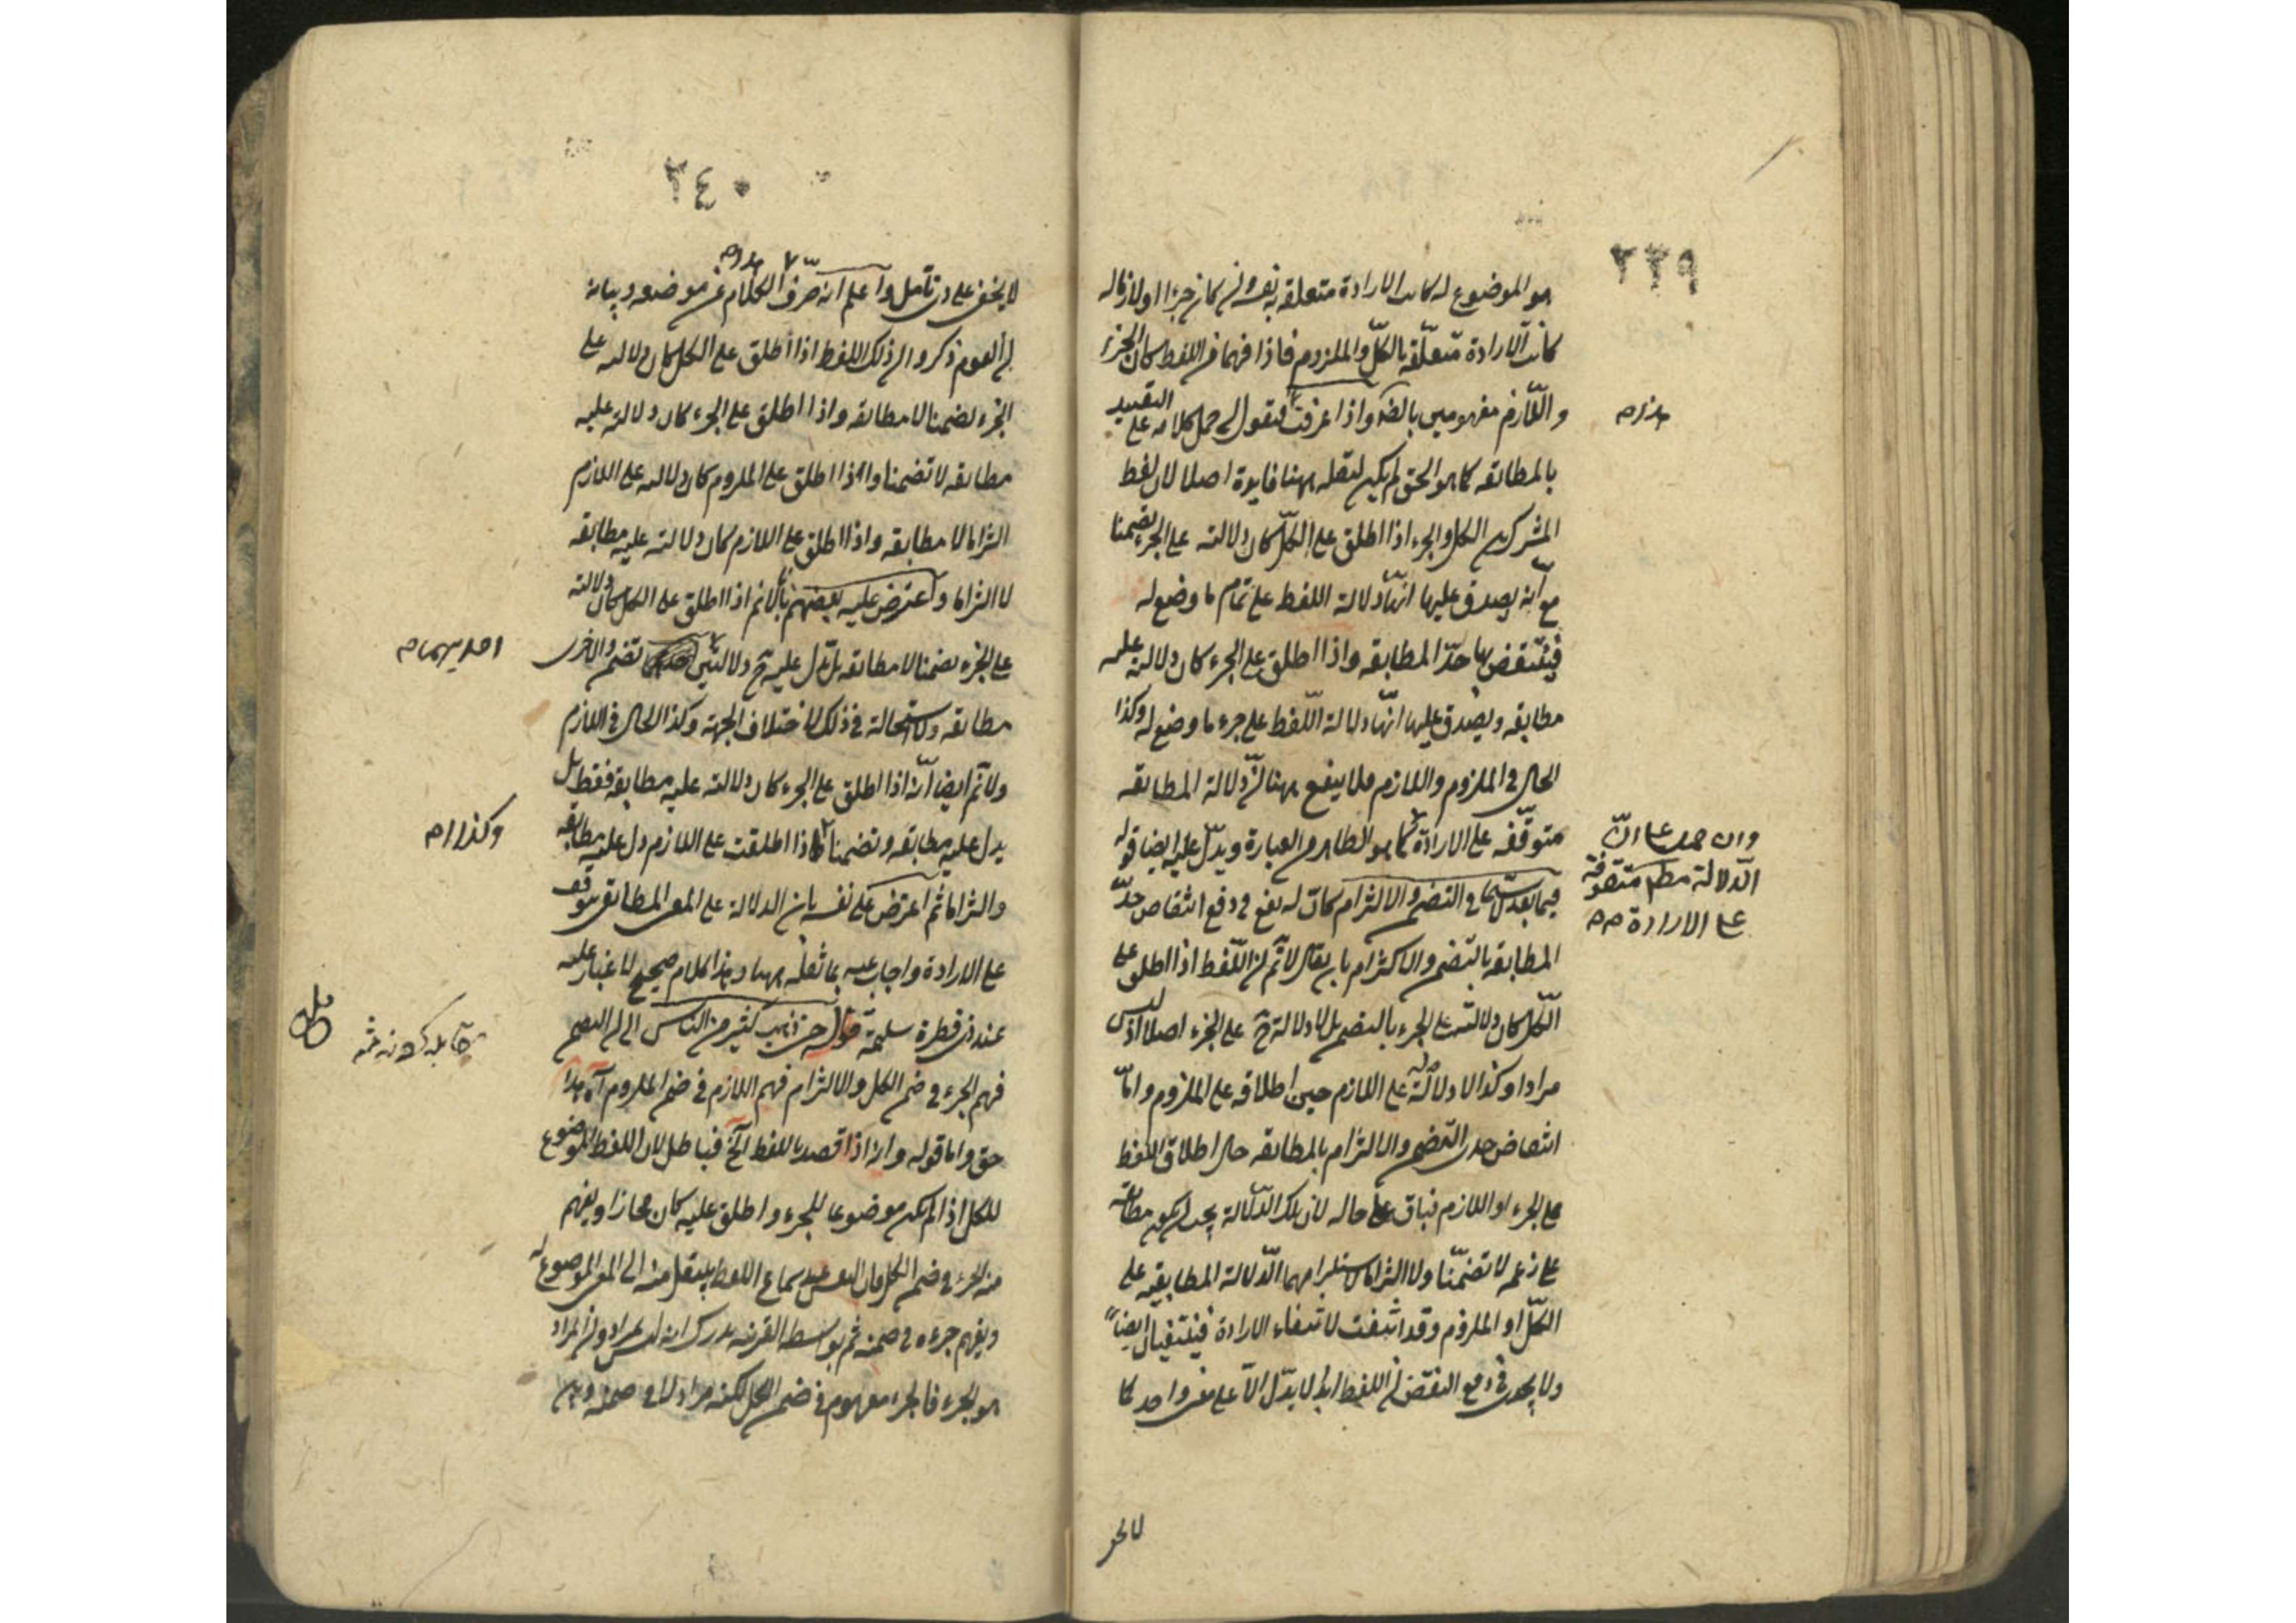 ٢٣٩
هو الموضوع له كانت الارادة متعلقة به نفسه وان كان جزءا او لازما له
كانت الارادة متعلقة بالكل والملزوم فاذا فهما من اللفظ كان الجزء
واللازم مفهومين بالضرورة واذا عرفت فنقول ان حمل كلامه على التقييد
هذا ص
بالمطابقه كما هو الحق لم يكن لنقله ههنا فايدة اصلا لان لفظ
المشترك بين الكل والجزء اذا اطلق على الكل كان دلالته على الجزء تضمنا
مع انه يصدق عليها انها دلالة اللفظ على تمام ما وضع له
فينتقض بها حد المطابقه واذا اطلق على الجزء كان دلالته عليه
مطابقه ويصدق عليها انها دلالة اللفظ على جزء ما وضع له وكذا
الحال في الملزوم واللازم فلا ينفع ههنا ان دلالة المطابقه
متوقفه على الارادة كما هو الظاهر من العبارة ويدل عليه ايضا قوله
وان حمل على ان
الدلالة مطلقا متوقفة
على الارادة ص
فيما بعد لا سيما في التضمن والالتزام كان له نفع في دفع انتقاض حد
المطابقه بالتضمن والالتزام بان يقال لا نم ان اللفظ اذا اطلق على
الكل كان دلالته على الجزء بالتضمن بل لا دلالة ح على الجزء اصلا اذ ليس
مرادا وكذا لا دلالة له على اللازم حين اطلاقه على الملزوم واما
انتقاض حدى التضمن والالتزام بالمطابقه حال اطلاق اللفظ
على الجزء او اللازم فباق على حاله لان تلك الدلالة يجب ان يكون مطابقة
على زعمه لا تضمنا ولا التزاما لاستلزامهما الدلالة المطابقيه على
الكل او الملزوم وقد انتفت لانتفاء الارادة فينتفيان ايضا
ولا يجدى في دفع النقض ان اللفظ ابدا لا يدل الا على معنى واحد كما
لا يخفى
٢٤٠
لا يخفى على من تأمل واعلم انه صرف الكلام عن موضعه وبيانه
ان القوم ذكروا ان ذلك اللفظ اذا اطلق على الكل كان دلالته على
الجزء تضمنا لا مطابقه واذا اطلق على الجزء كان دلالته عليه
مطابقه لا تضمنا واذا اطلق على الملزوم كان دلالته على اللازم
التزاما لا مطابقه واذا اطلق على اللازم كان دلالته عليه مطابقه
لا التزاما واعترض عليه بعضهم بانا لا نم اذا اطلق على الكل كان دلالته
على الجزء تضمنا لا مطابقه بل تدل عليه ح دلالتين تضمن والاخرى
احديهما ص
مطابقه ولا استحالة في ذلك لاختلاف الجهة وكذا الحال في اللازم
ولا نم ايضا انه اذا اطلق على الجزء كان دلالته عليه مطابقه فقط بل
يدل عليه مطابقه وتضمنا اذا اطلقت على اللازم دل عليه مطابقه
وكذا ص
والتزاما ثم اعترض على نفسه بان الدلالة على المعنى المطابقى يتوقف
على الارادة واجاب عنه بما نقله ههنا وهذا كلام صحيح لا غبار عليه
عند ذى فطرة سليمة قوله حتى ذهب كثير من الناس الى ان التضمن
فهم الجزء في ضمن الكل والالتزام فهم اللازم في ضمن الملزوم آه هذا
حق واما قوله وانه اذا قصد باللفظ الخ فباطل لان اللفظ الموضوع
للكل اذا لم يكن موضوعا للجزء واطلق عليه كان مجازا ويفهم
منه الجزء في ضمن الكل فان النفس عند سماع اللفظ ينتقل منه الى المعنى الموضوع له
ويفهم جزءه في ضمنه ثم بواسطة القرينه يدرك انه ليس بمراد وان المراد
هو الجزء فالجزء مفهوم في ضمن الكل لكنه مراد لا في ضمنه وبين